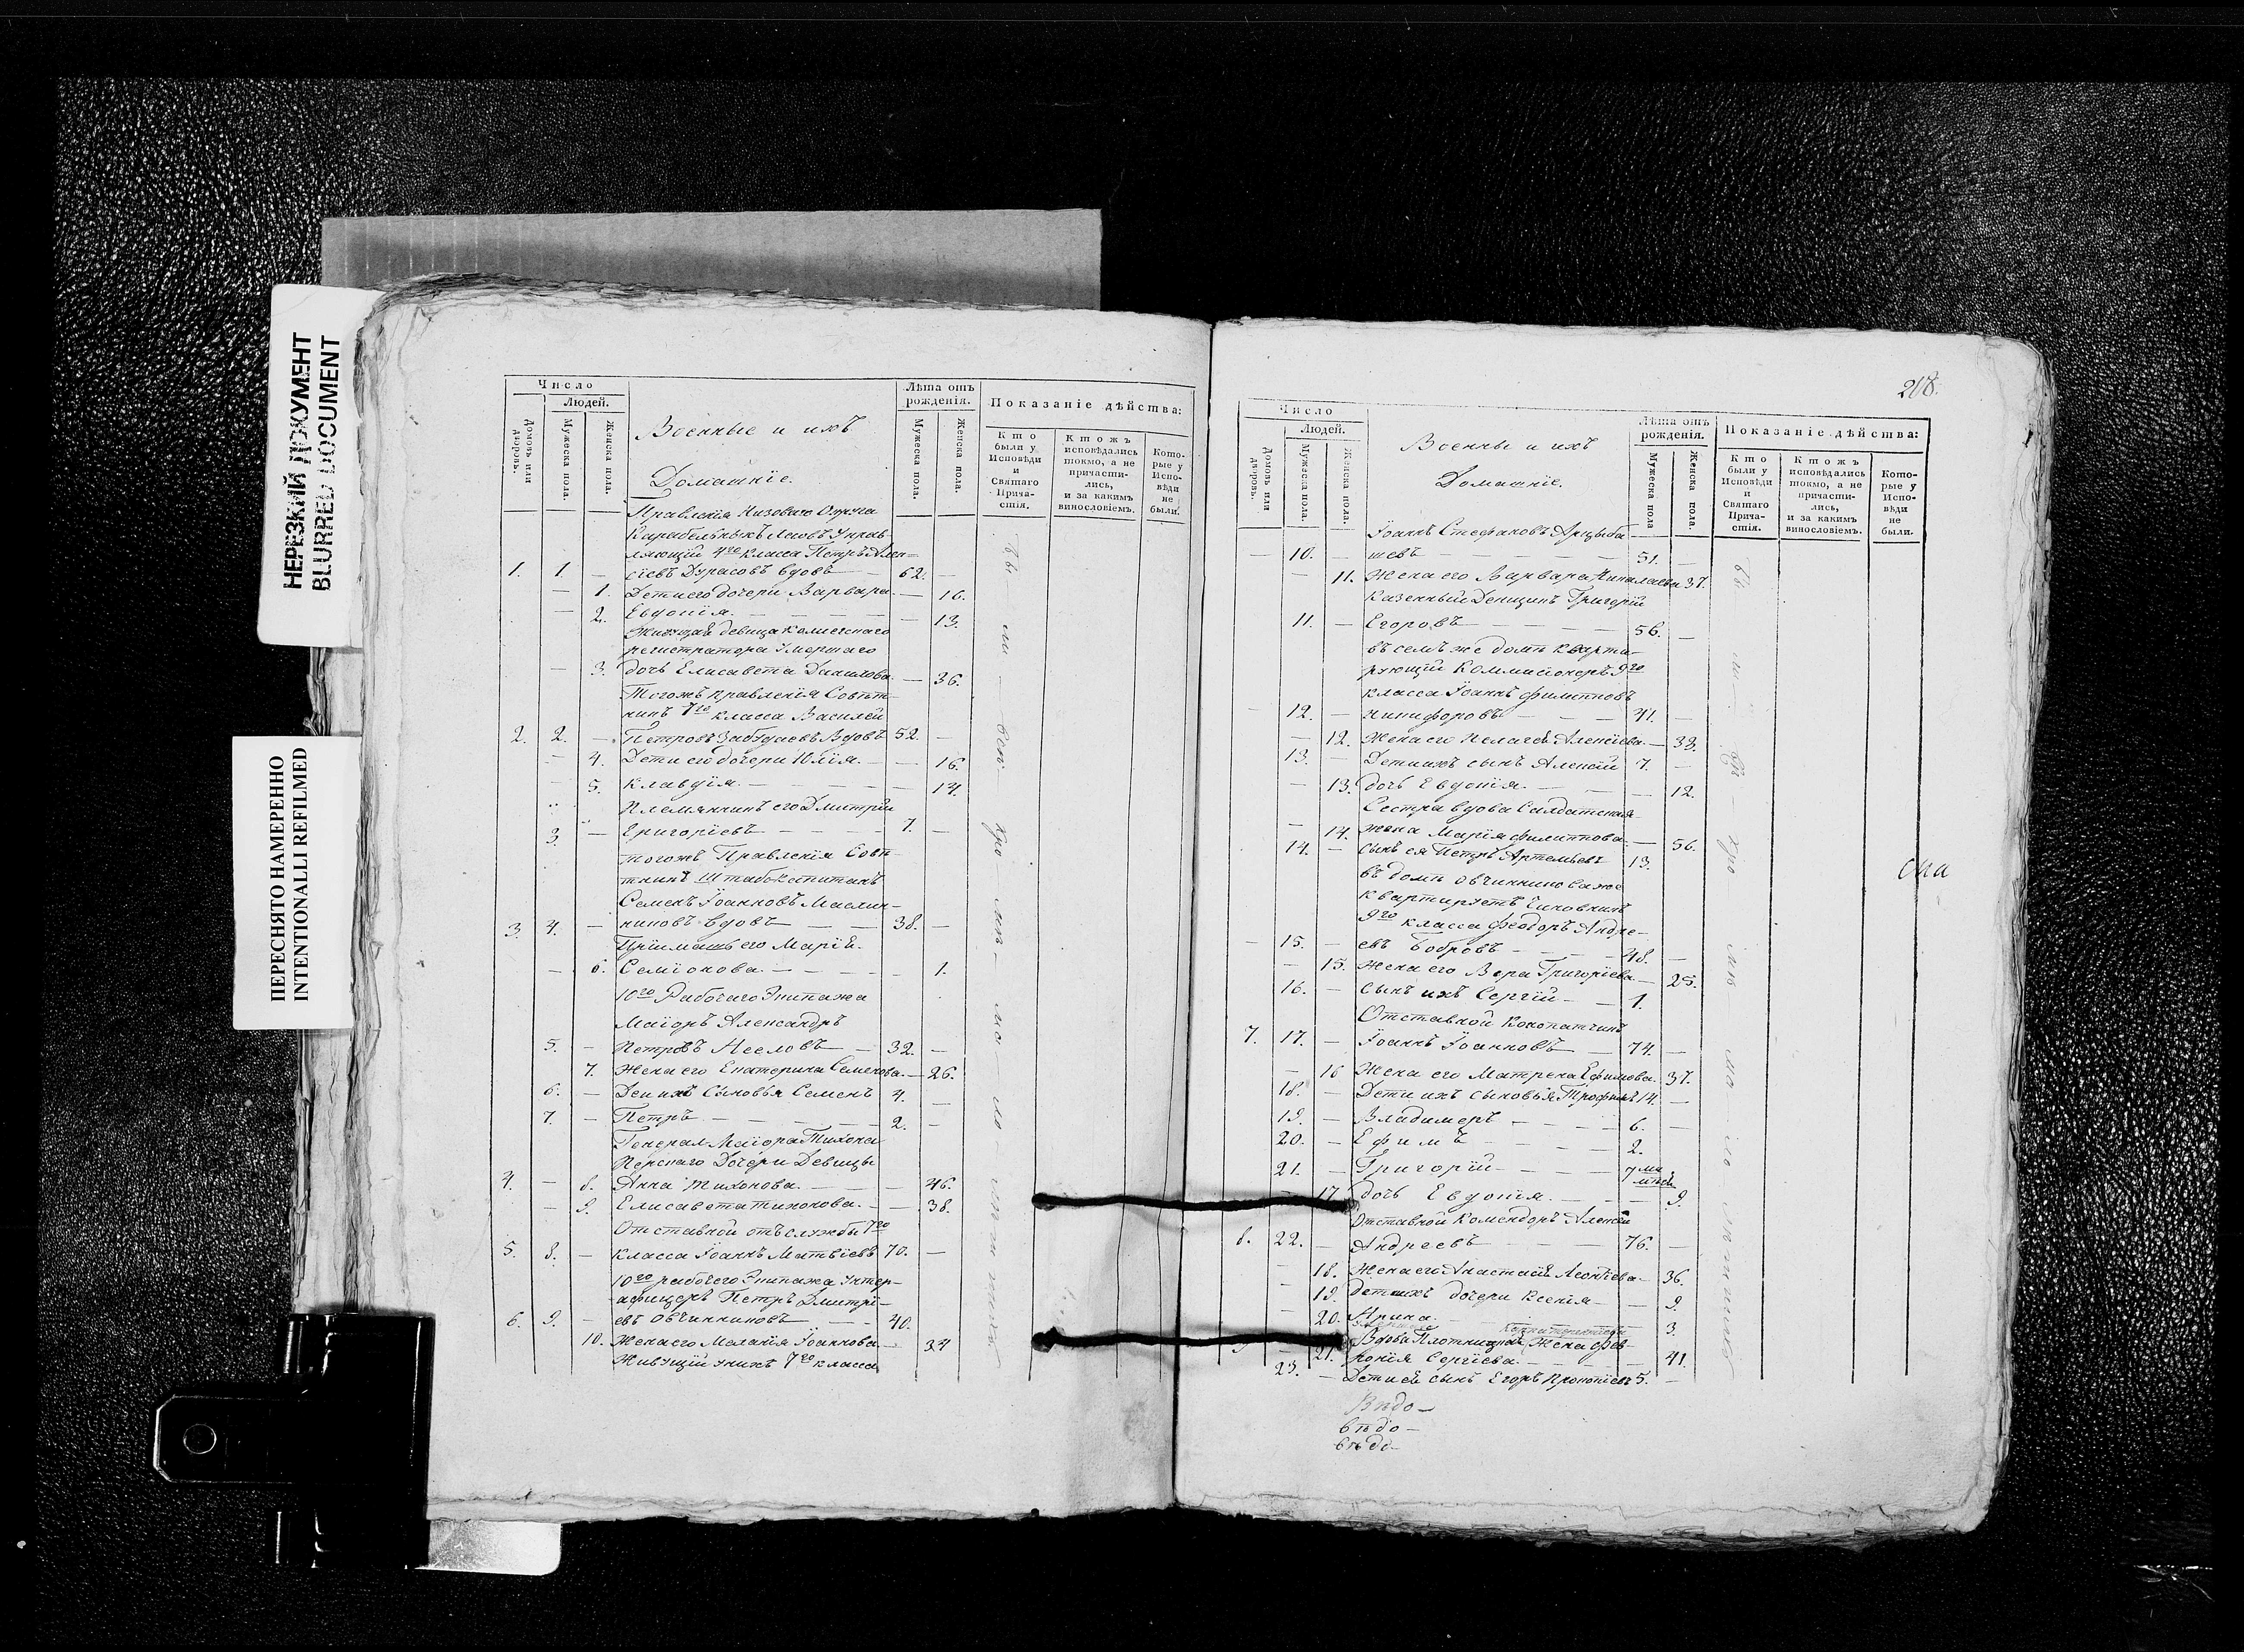 НЕРЕЗКИЙ ДОКУМЕНТ
BLURRED DOCUMENT
ПЕРЕСНЯТО НАМЕРЕННО
INTENTIONALLI REFILMED
Число
Людей.
Домовъ или дворовъ.
Мужеска пола.
Женска пола.
Военные и ихъ
Домашніе.
Лѣта отъ рожденія.
Мужеска пола.
Женска пола.
Показаніе дѣйства:
Кто были у Исповѣди и Святаго Прича-стія.
Ктожъ исповѣдались токмо, а не причасти-лись, и за какимъ винословіемъ.
Кото-рые у Испо-вѣди не были.
Правленія Низоваго Округа
Карабельныхъ Лесовъ Управ-
ляющій 4го класса Петръ Алек-
1. 1. — сіевъ Дурасовъ вдовъ — 62. —
— 1. Дети его дочери Варвара. — 16.
— 2. Евдокія. — — — 13.
Живущая девица
регистратора Умершаго
— 3. дочь Елисавета Данилова. — 36.
Тогожъ правленія Совѣт-
никъ 7го класса Василей
2. 2. — Петровъ вдовъ 52. —
— 4. Дети его дочери Юлія. — — 16.
5. Клавдія. — — — 14.
Племянникъ его Дмитрій
3. — Григоріевъ — — — 7. —
тогожъ Правленія Совѣ-
тникъ Штабс-Капитанъ
Семенъ Іоанновъ Маслен-
3. 4. — никовъ вдовъ — — 38. —
его Марія
— 6. Семіонова. — — — 1.
10го Рабочаго Экипажа
Маіоръ Александръ
5. — Петровъ — 32. —
7. Жена его Екатерина Семенова. — 26.
6. — Дети ихъ Сыновья Семенъ 4. —
7. — Петръ — — — 2. —
Генерал-Маіора Тихона
Перскаго Дочери Девицы
4. — 8. Анна Тихонова. — — 46.
— 9. Елисавета Тихонова. — — 38.
Отставной отъ службы 7го
5. 8. — класса Іоаннъ Матвіевъ 70. —
10го рабочего Экипажа унтер-
афицеръ Петръ Дмитрі-
6. 9. — евъ Овчинниковъ — — 40.
10. Жена его Меланія Іоаннова. — 34
Живущій у нихъ 7го класса
218.
Число
Людей.
Домовъ или дворовъ.
Мужеска пола.
Женска пола.
Военны и ихъ
Домашніе.
Лѣта отъ рожденія.
Мужеска пола
Женска пола.
Показаніе дѣйства:
Кто были у Исповѣди и Святаго Прича-стія.
Ктожъ исповѣдались токмо, а не причасти-лись, и за какимъ винословіемъ.
Кото-рые у Испо-вѣди не были.
Іоаннъ Стефановъ Арцыба-
— 10. — шевъ — — — 51. —
— 11. Жена его Варвара Николаева 37.
Казенный Денщикъ Григорій
11. — Егоровъ — — — 56. —
въ семъ же домѣ кварти-
рующій Коммисіонеръ 9го
класса Іоаннъ Филипповъ
— 12. — Никифоровъ — — — 41. —
— 12. Жена его Пелагея Алексіева. — 33.
13. — Дети ихъ сынъ Алексій 7. —
— 13. дочь Евдокія. — — — 12.
Сестра вдова Салдатская
— 14. Жена Марія Филиппова. — 56.
14. — Сынъ ея Петръ Артемьевъ 13.
въ домѣ Овчинникова же
квартируетъ Чиновникъ
9го класса Феодоръ Андре-
— 15. — евъ Бобровъ — — — 48. —
— 15. Жена его Вера Григоріева — 25.
16. — Сынъ ихъ Сергій — — 1.
Отставной Конопатчикъ
7. 17. — Іоаннъ Іоанновъ — 74. —
— 16 Жена его Матрена Ефимова. 37.
18. — Дети ихъ сыновья Трофимъ 14. —
19. — Владимеръ — — — 6. —
20. — Ефимъ — — — 2.
21. — Григорій — — — 7 ми
— 17 дочь Евдокія. — — — 9.
Отставной Комендоръ Алексій
8. 22. — Андреевъ — — — 76. —
— 18. Жена его Анастасія Леонтіева — 36.
— 19. Дети ихъ дочери Ксенія — — 9.
— 20. Ирина. — — — 3.
Вдова Плотницкая Жена Фев-
— 21. ронія Сергіева. — — — 41.
23. — Дети ея сынъ Егоръ Прокопіевъ 5. —
Вѣдо-
вѣдо-
вѣдо-